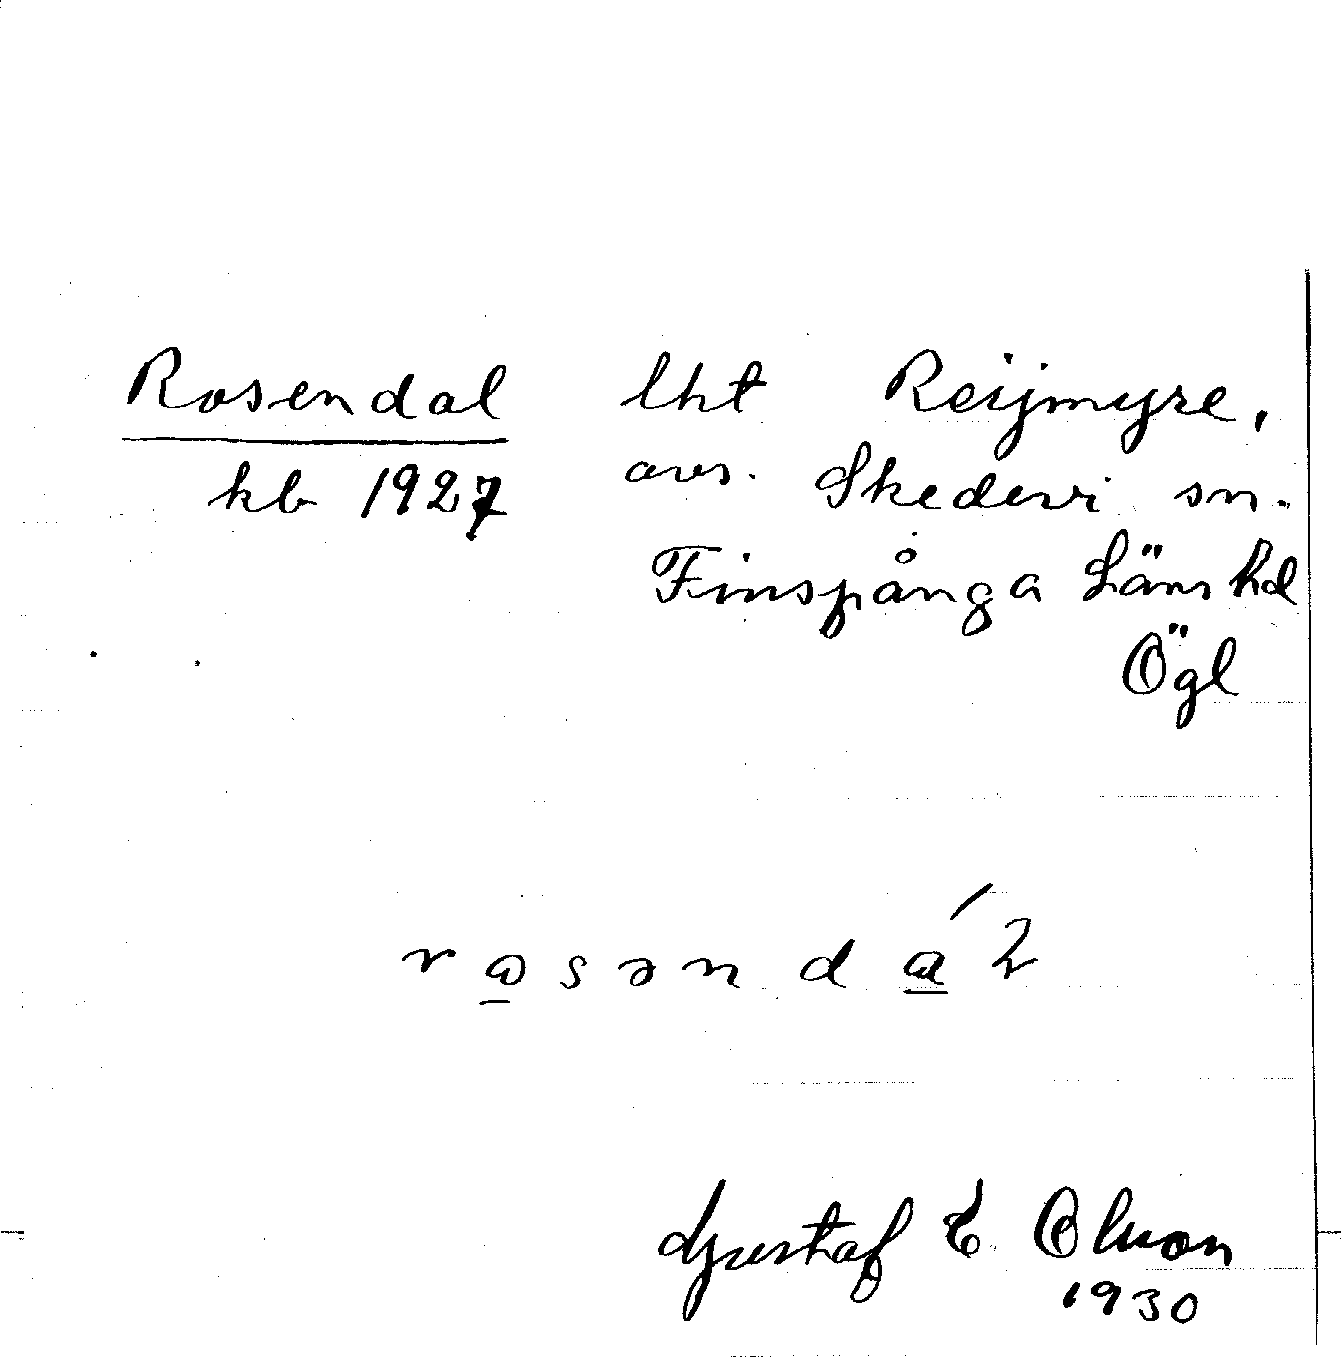 Rosendal lht Reijmyre,
kb 1927 avs. Skedevi sn.
Finspånga Läns hd
Ögl
rosəndál
Gustaf E Olson
1930